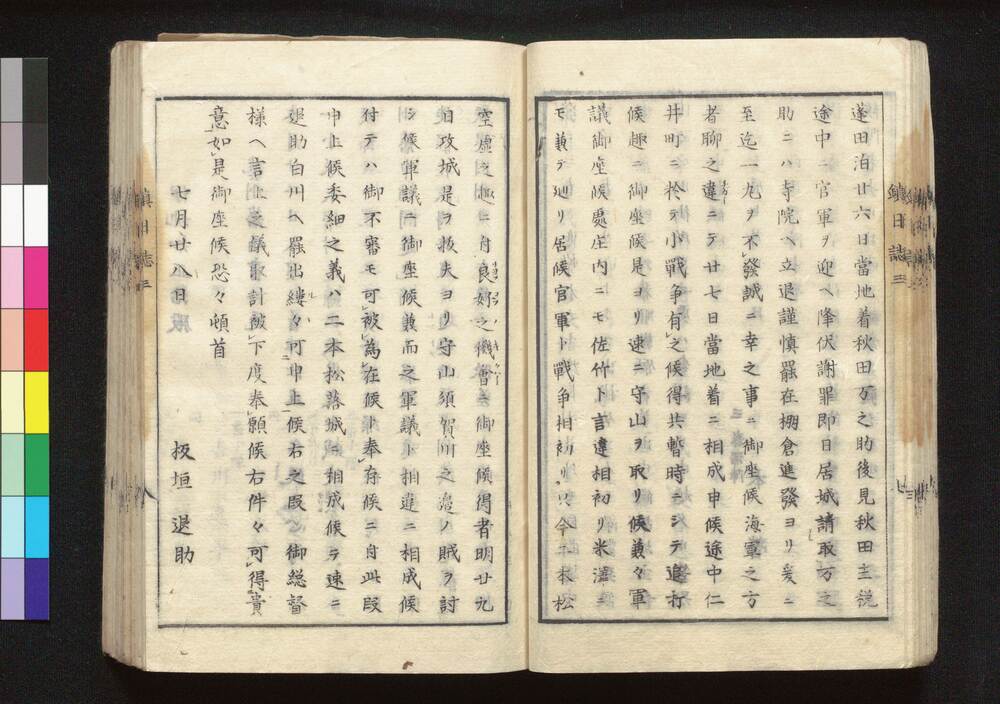 蓬田泊廿六日當地着秋田万之助後見秋田主税
途中ニ官軍ヲ迎ヘ降伏謝罪即日居城請取万之
助ニハ寺院ヘ立退謹慎罷在棚倉進發ヨリ爰ニ
至迄一丸ヲ不發誠ニ幸之事ニ御座候海軍之方
者聊之違ニテ廿七日當地着ニ相成申候途中仁
井町ニ於テ小戰争有之候得共暫時ニシテ追打
候趣ニ御座候是ヨリ速ニ守山ヲ取リ候兼々軍
議御座候處庄内ニモ佐竹ト言違相初リ米澤ニ
モ兼テ廻リ居候官軍ト戰争相初リ只今二本松
空虚之趣ニ付良好之機會ニ御座候得者明廿九
日攻城是ヲ拔夫ヨリ守山須賀川之邊ノ賊ヲ討
シ候軍議ニ御座候兼而之軍議ト相違ニ相成候
付テハ御不審モ可被為在候ト奉存候ニ付此段
申上候委細之義ハ二本松落城ニ相成候ヲ速ニ
退助白川ヘ罷出縷々可申上候右之段 御総督
様ヘ言上之議取計被下度奉願候右件々可得貴
意如是御座候恐々頓首
七月廿八日
板垣退助
鎮日誌三